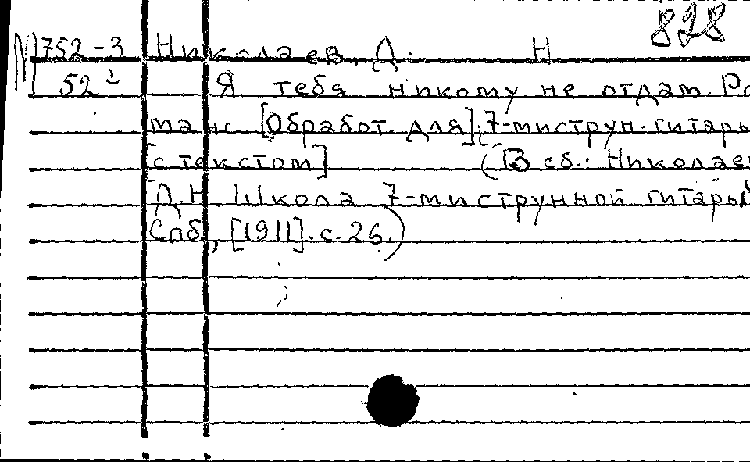 828
М 752-3 Николаев, Д. Н
52² Я тебя никому не отдам. Ро
манс [Обработ. для] 7-миструн. гитары
[с текстом] (В сб.: Николаев
Д.Н. Школа 7-миструнной гитары
Спб, [1911]. с. 26.)